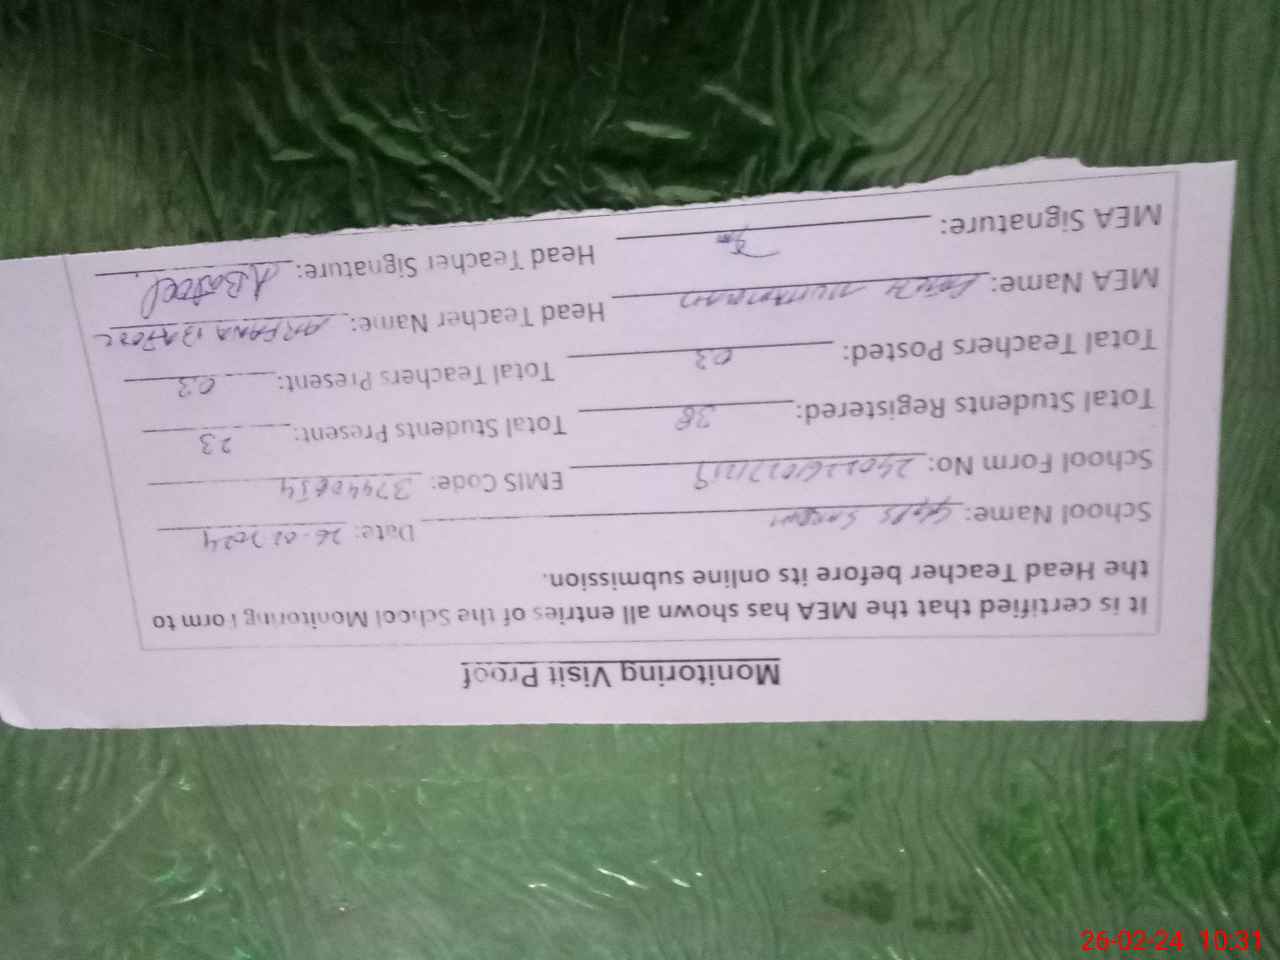 Monitoring Visit Proof
It is certified that the MEA has shown all entries of the School Monitoring Form to
the Head Teacher before its online submission.
School Name: GGPS Date: 26-02-2024
School Form No: EMIS Code:
Total Students Registered: 38 Total Students Present: 23
Total Teachers Posted: 03 Total Teachers Present: 03
MEA Name: Head Teacher Name: ARFANA BATOOL
MEA Signature: Head Teacher Signature: ABatool
26-02-24 10:31